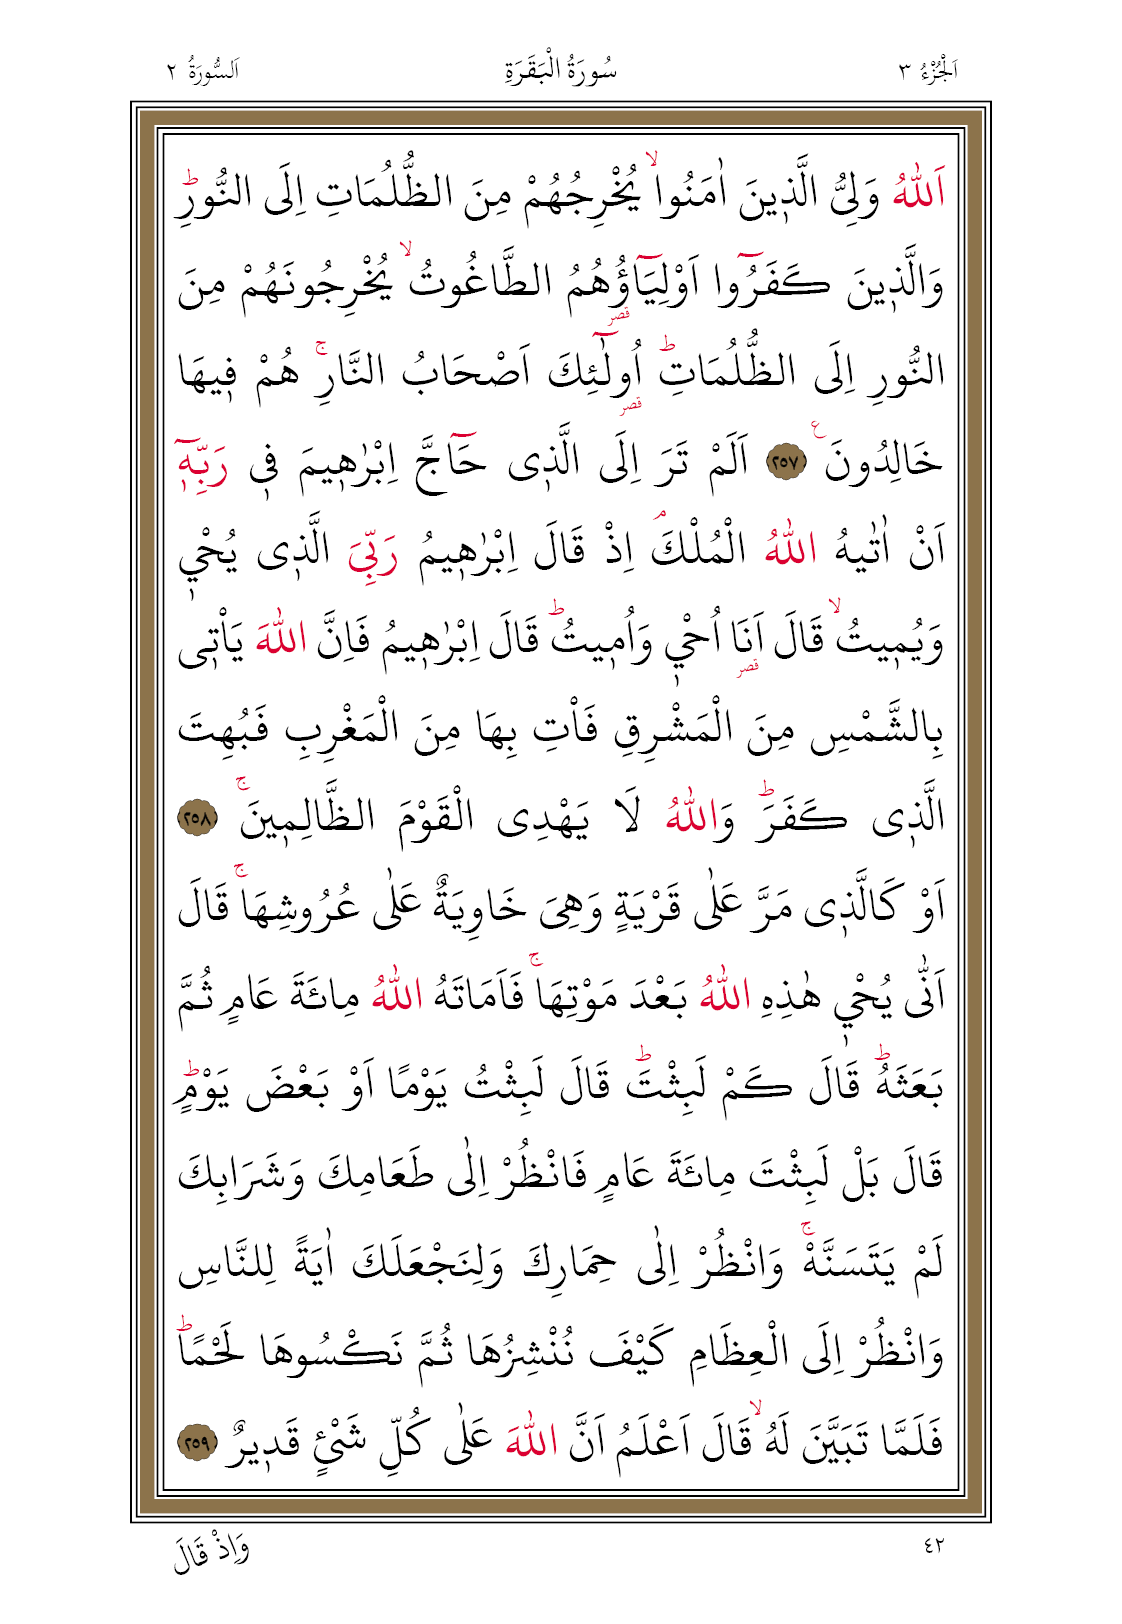 اَلْجُزْءُ ٣
سُورَةُ الْبَقَرَةِ
اَلسُّورَةُ ٢
اَللّٰهُ وَلِيُّ الَّذ۪ينَ اٰمَنُواۙ يُخْرِجُهُمْ مِنَ الظُّلُمَاتِ اِلَى النُّورِۜ
وَالَّذ۪ينَ كَفَرُٓوا اَوْلِيَٓاؤُ۬هُمُ الطَّاغُوتُۙ يُخْرِجُونَهُمْ مِنَ
قصر
النُّورِ اِلَى الظُّلُمَاتِۜ اُو۬لٰٓئِكَ اَصْحَابُ النَّارِۚ هُمْ ف۪يهَا
قصر
خَالِدُونَ۟ ﴿٢٥٧﴾ اَلَمْ تَرَ اِلَى الَّذ۪ى حَٓاجَّ اِبْرٰه۪يمَ ف۪ى رَبِّه۪ٓ
اَنْ اٰتٰيهُ اللّٰهُ الْمُلْكَۢ اِذْ قَالَ اِبْرٰه۪يمُ رَبِّيَ الَّذ۪ى يُحْي۪
وَيُم۪يتُۙ قَالَ اَنَا۬ اُحْي۪ وَاُم۪يتُۜ قَالَ اِبْرٰه۪يمُ فَاِنَّ اللّٰهَ يَاْت۪ى
قصر
بِالشَّمْسِ مِنَ الْمَشْرِقِ فَاْتِ بِهَا مِنَ الْمَغْرِبِ فَبُهِتَ
الَّذ۪ى كَفَرَۜ وَاللّٰهُ لَا يَهْدِى الْقَوْمَ الظَّالِم۪ينَۚ ﴿٢٥٨﴾
اَوْ كَالَّذ۪ى مَرَّ عَلٰى قَرْيَةٍ وَهِيَ خَاوِيَةٌ عَلٰى عُرُوشِهَاۚ قَالَ
اَنّٰى يُحْي۪ هٰذِهِ اللّٰهُ بَعْدَ مَوْتِهَاۚ فَاَمَاتَهُ اللّٰهُ مِائَةَ عَامٍ ثُمَّ
بَعَثَهُۜ قَالَ كَمْ لَبِثْتَۜ قَالَ لَبِثْتُ يَوْمًا اَوْ بَعْضَ يَوْمٍۜ
قَالَ بَلْ لَبِثْتَ مِائَةَ عَامٍ فَانْظُرْ اِلٰى طَعَامِكَ وَشَرَابِكَ
لَمْ يَتَسَنَّهْۚ وَانْظُرْ اِلٰى حِمَارِكَ وَلِنَجْعَلَكَ اٰيَةً لِلنَّاسِ
وَانْظُرْ اِلَى الْعِظَامِ كَيْفَ نُنْشِزُهَا ثُمَّ نَكْسُوهَا لَحْمًاۜ
فَلَمَّا تَبَيَّنَ لَهُۙ قَالَ اَعْلَمُ اَنَّ اللّٰهَ عَلٰى كُلِّ شَيْئٍ قَد۪يرٌ ﴿٢٥٩﴾
٤٢
وَاِذْ قَالَ